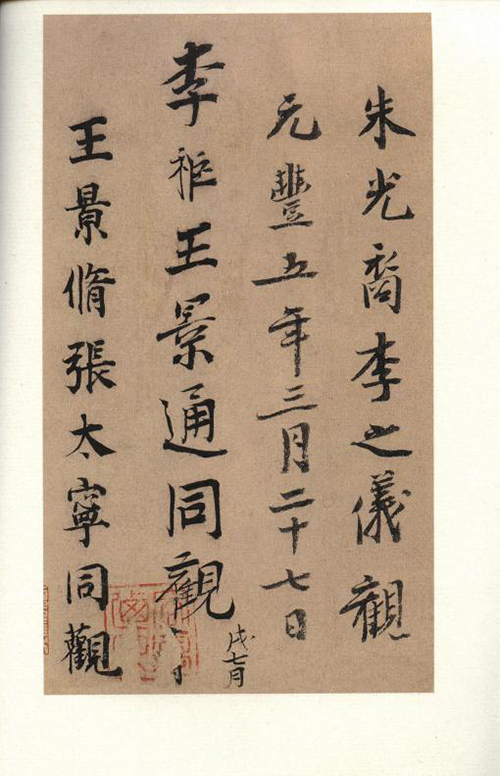 朱光裔李之儀觀
元豐五年三月二十七日
李秬王景通同觀
七月
王景脩張太寧同觀